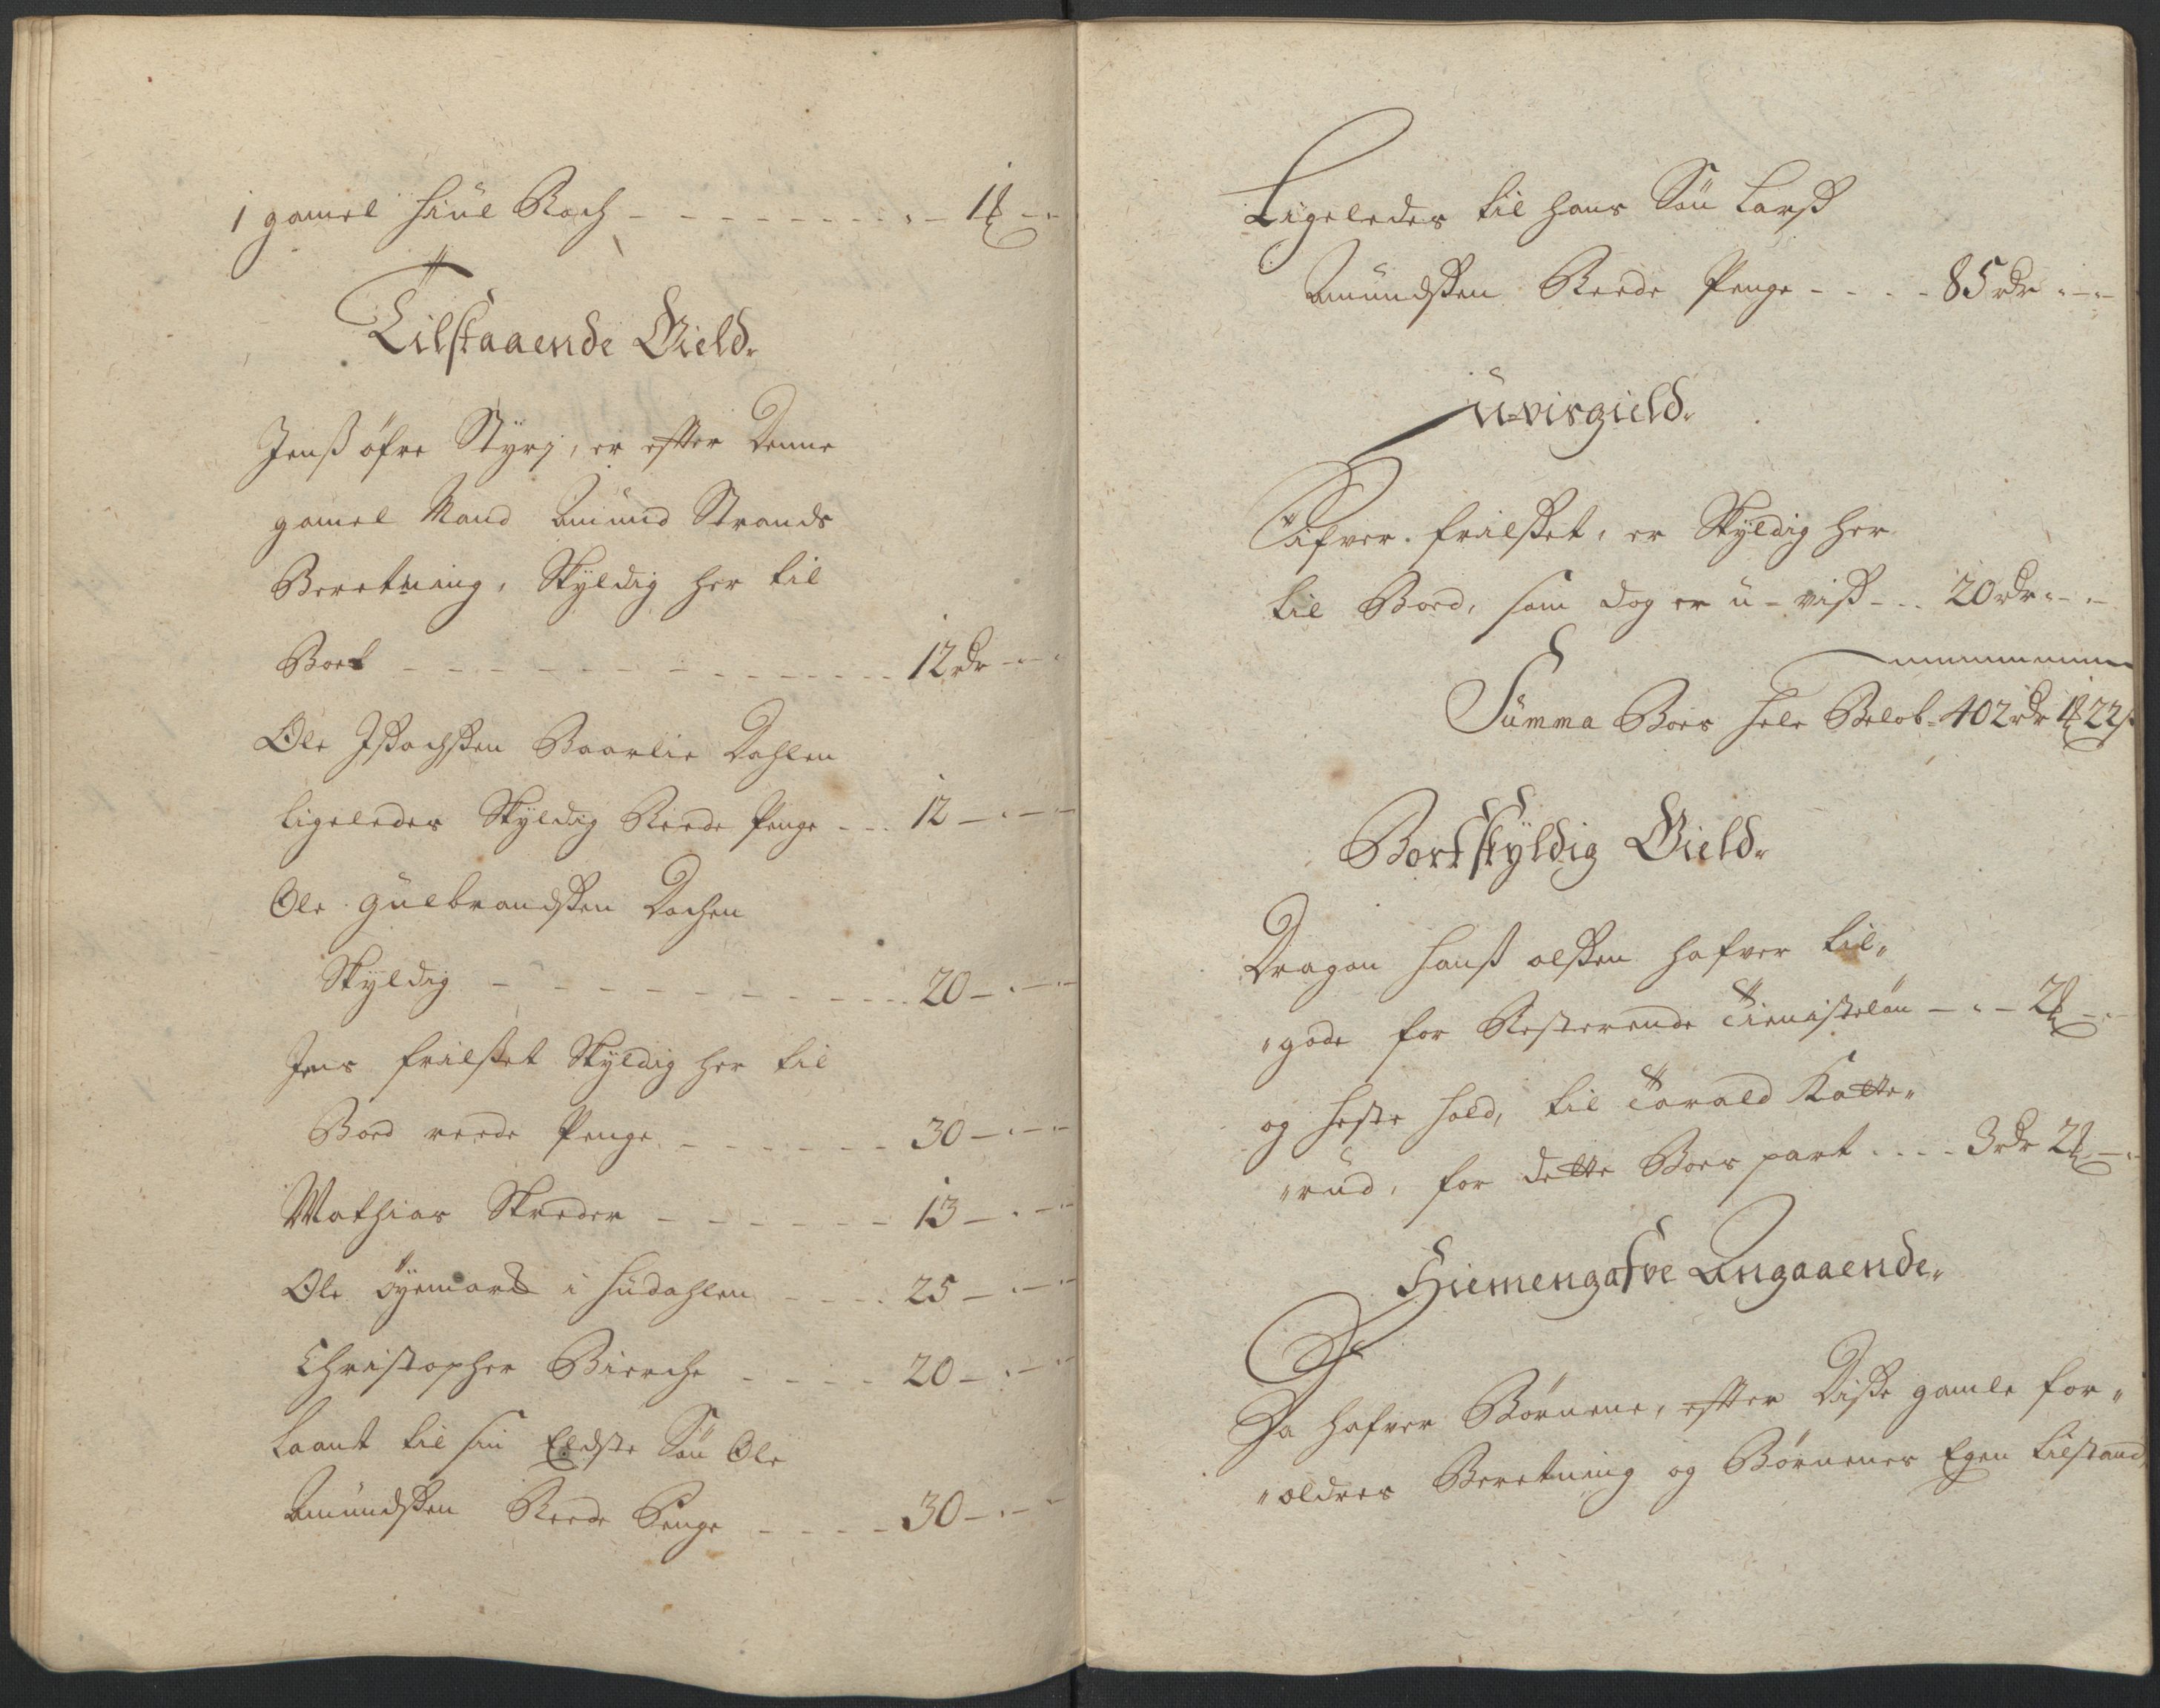 1 gamel Hiul Roch - - - - - - - - - - 1 ℔ - -
Tilstaaende Gield.
Jenß øfre Styri, er efter denne
gamel Mand Amund Strands
Beretning, Skyldig her til
Boet - - - - - - - - - - - - 12 rdr - -
Ole Isachsen Baarlie Dahlen
ligeledes Skyldig Reede Penge - - - 12 - - -
Ole Gulbrandsen Dochen
Skyldig - - - - - - - - - - - 20 - - -
Jens frilset Skyldig her til
Boed reede Penge - - - - - - 30 - - -
Mathias Skreder - - - - - - 13 - - -
Ole Øyemark i Hudahlen - - - 25 - - -
Christopher Bierche - - - - 20 - - -
Laant til sin Eldste Søn Ole
Amundsen Reede Penge - - - - 30 - - -
Ligeledes til hans Søn Larß
Amundsen Reede Penge - - - - 85 rdr - -
u-visgield.
Sifver frilset, er Skyldig her
til Boed, som dog er u-viß - - 20 rdr - -
Summa Boes hele Beløb - 402 rdr 1 ℔ 22 ß
Bortskyldig Gield.
Dragon Hanß olsen hafver til„
„gode for Resterende Tienisteløn - - - 2 ℔ - -
og heste hold, til Torald Kolte„
„rud, for dette Boes part - - - - 3 rdr 2 ℔ - -
Hiemengafve Angaaende.
Da hafver Børnene, efter Disse gamle for„
„ældres Beretning og Børnenes Egen tilstand,